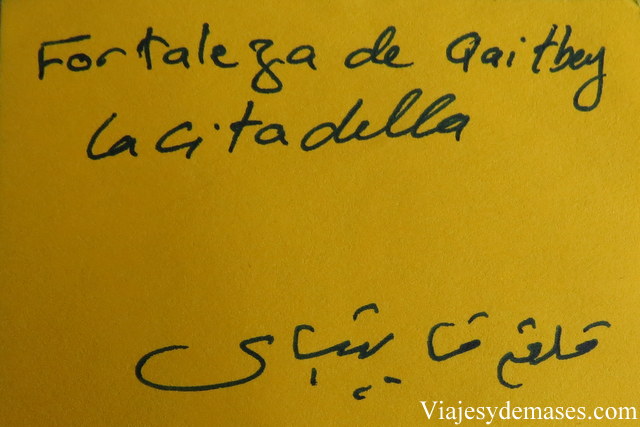 Fortaleza de Qaitbey
La Citadella
قلعة قايتباى
Viajesydemases.com